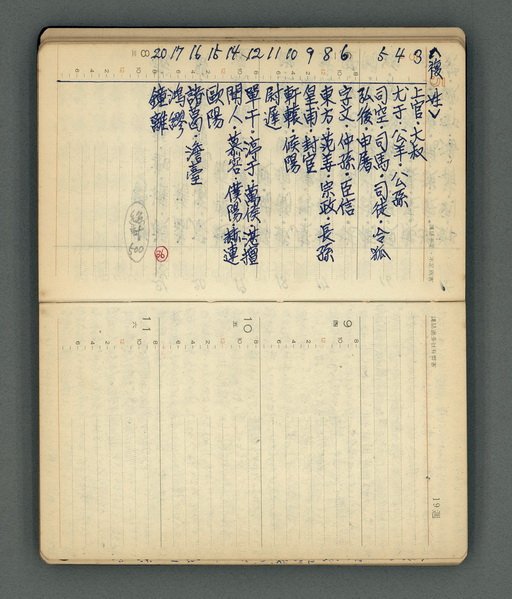 <複姓>
3 上官·大叔
4 尤于·公羊·公孫
5 司空·司馬·司徒·令狐
弘俟·申屠
6 宇文 仲孫·臣信
8 東方·范姜·宗政·長孫
9 皇甫·封官
10 軒轅·候陽
11 尉遲
12 單于·淳于·萬俟
14 聞人·慕容·濮陽·赫連
15 歐陽
16 諸葛 澹臺
17 鴻繆
20 鍾離
總計500
96
8
9 四
10 五
11 六
19週